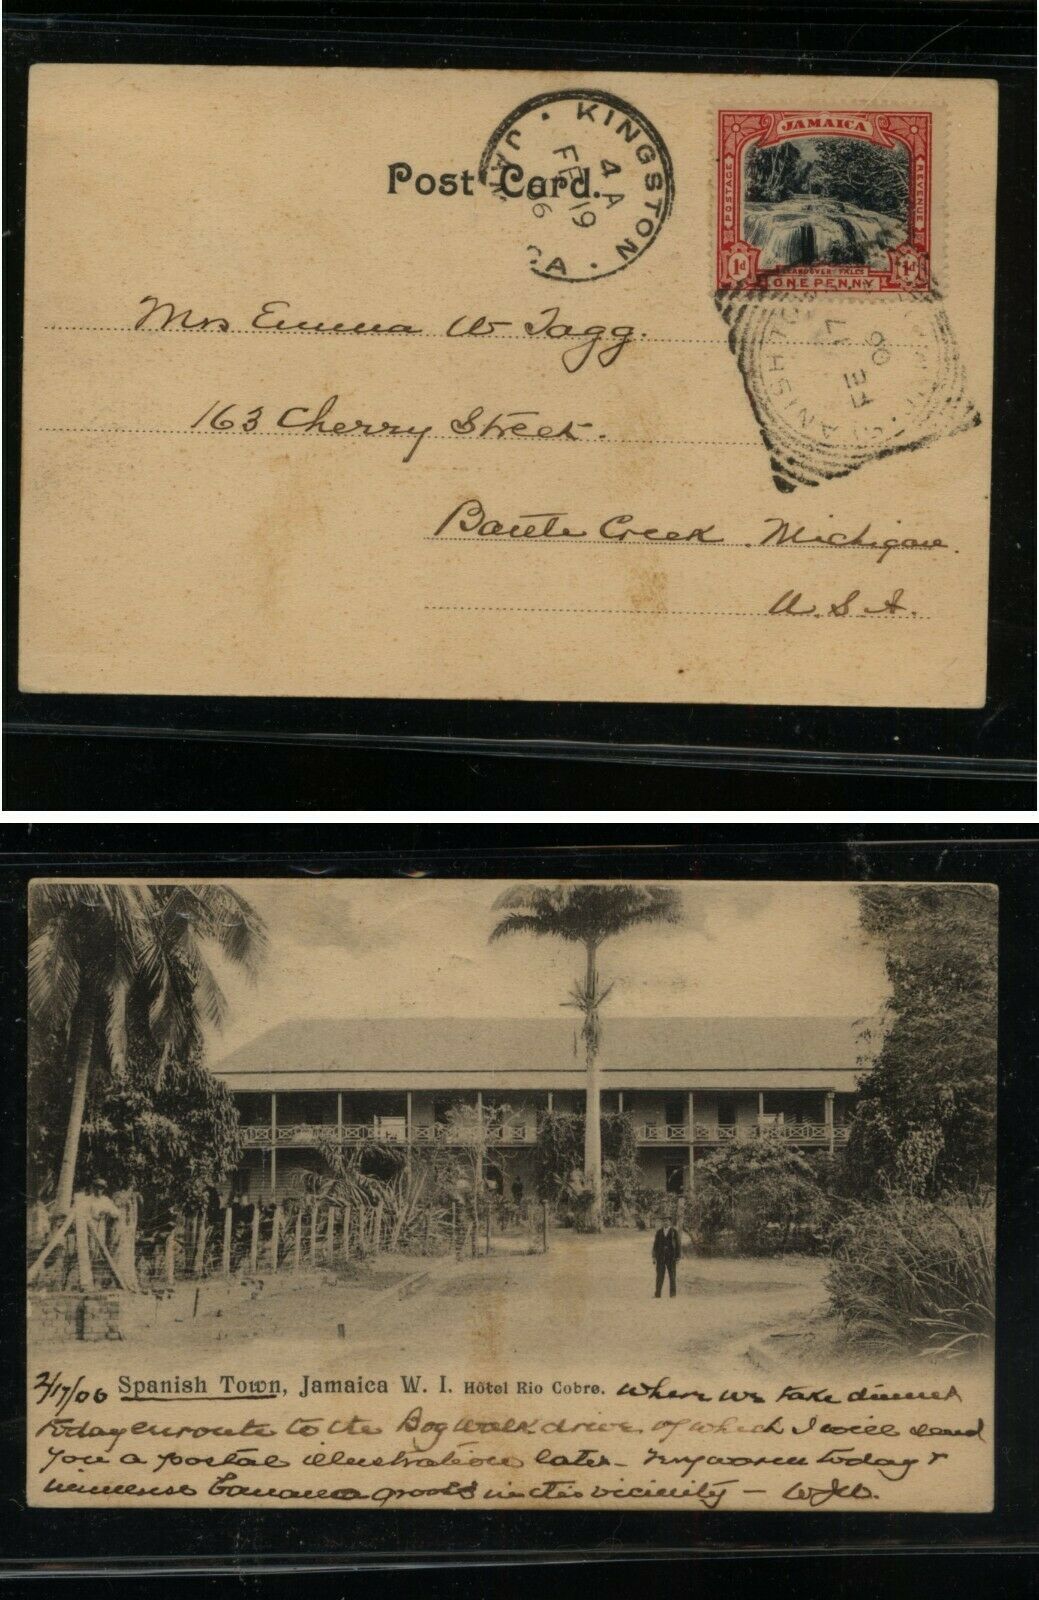 KINGSTON
4 A
FE 19
06
JAMAICA
Post Card.
JAMAICA
POSTAGE
REVENUE
LLANDOVERY FALLS
1d 1d
ONE PENNY
FE 17
06
Mrs Emma W Tagg.
163 Cherry Street.
Battle Creek. Michigan.
U.S.A.
2/17/06 Spanish Town, Jamaica W. I. Hôtel Rio Cobre. Where we take dinner
today enroute to the Bog Walk drive of which I will send
you a postal illustration later - Very warm today &
immense banana groves in this vicinity -